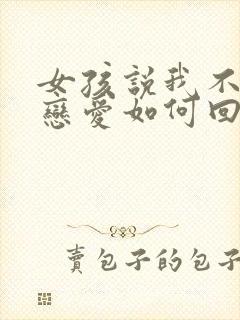 女孩說我不
戀愛如何回
賣包子的包子